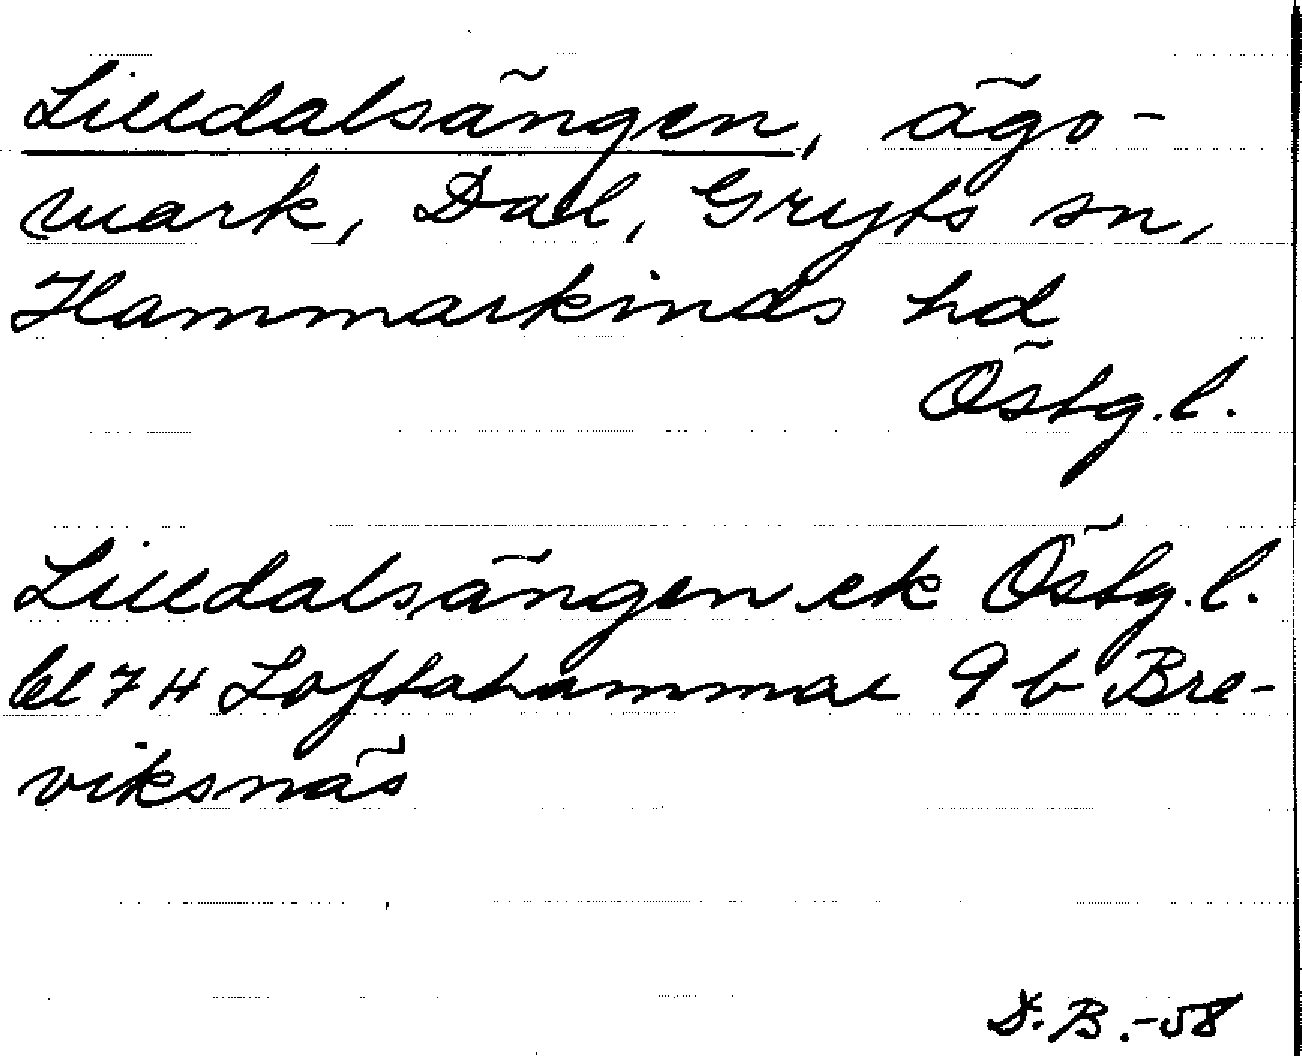 Lilldalsängen, ägo-
mark, Dal, Gryts sn,
Hammarkinds hd
Östg.l.
Lilldalsängen ek Östg.l.
bl 7H Loftahammar 9b Bre-
viksnäs
D.B.-58